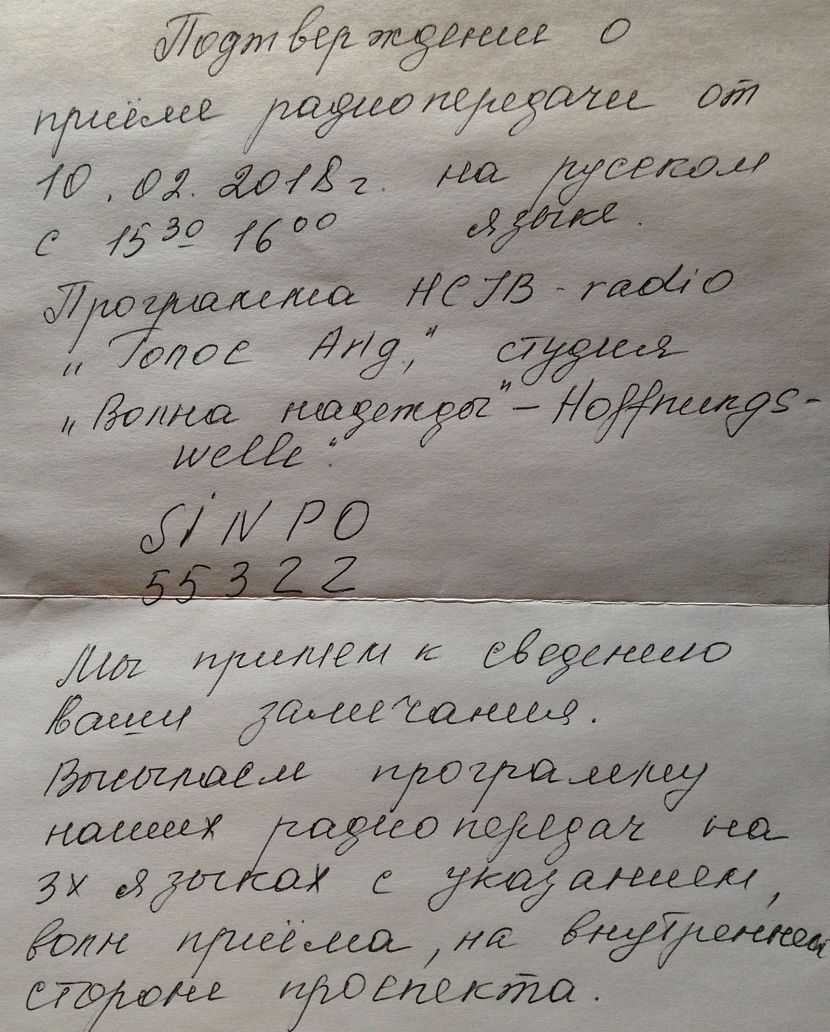 Подтверждение о
приёме радиопередачи от
10.02.2018г. на русском
с 15 30 16 00 языке.
Программа HCJB - radio
„Голос Анд," студия
„Волна надежды" – Hoffnungs-
welle".
SINPO
55322
Мы примем к сведению
Ваши замечания.
Высылаем программу
наших радиопередач на
3х языках с указанием,
волн приёма, на внутренней
стороне проспекта.